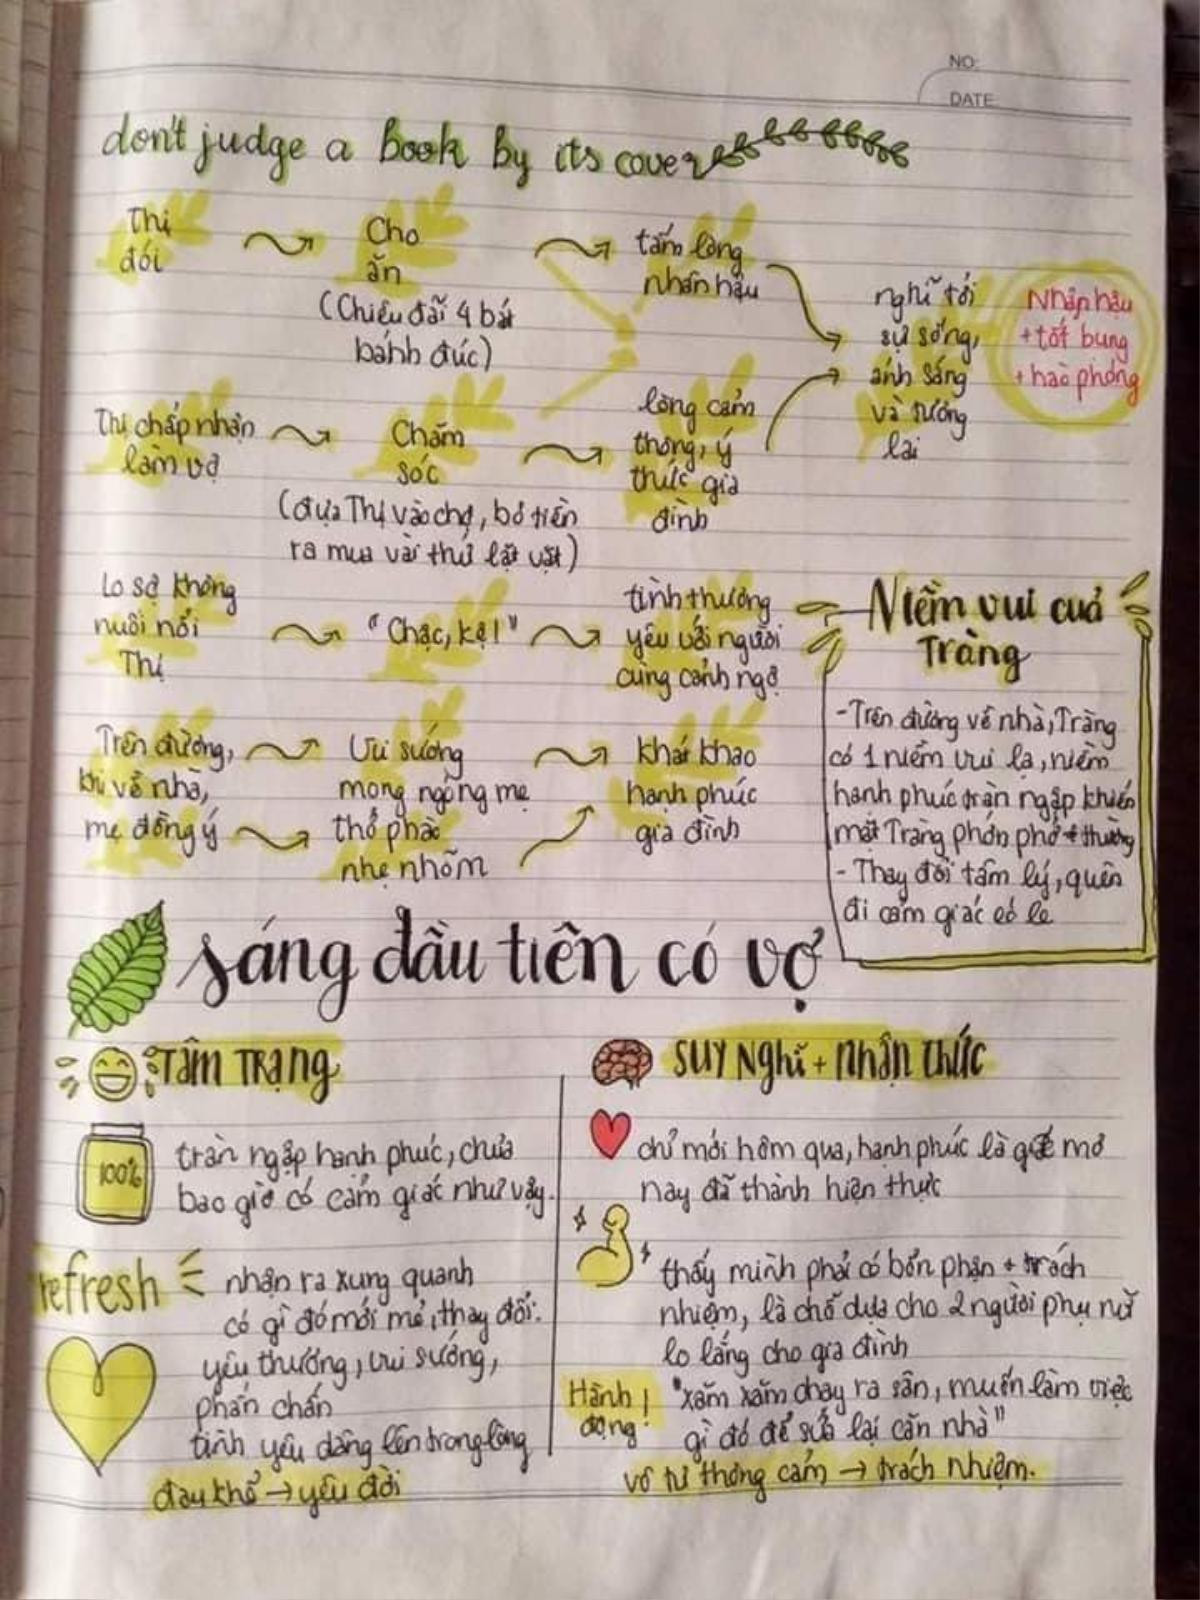 NO:
DATE
don't judge a book by its cover
Thị
đói
Cho
ăn
(Chiêu đãi 4 bát
bánh đúc)
tấm lòng
nhân hậu
nghĩ tới
sự sống,
ánh sáng
và tương
lai
Nhân hậu
+ tốt bụng
+ hào phóng
Thị chấp nhận
làm vợ
Chăm
sóc
(đưa Thị vào chợ, bỏ tiền
ra mua vài thứ lặt vặt)
lòng cảm
thông, ý
thức gia
đình
Lo sợ không
nuôi nổi
Thị
"Chậc, kệ!"
tình thương
yêu với người
cùng cảnh ngộ
Trên đường,
khi về nhà,
mẹ đồng ý
Vui sướng
mong ngóng mẹ
thở phào
nhẹ nhõm
khát khao
hạnh phúc
gia đình
Niềm vui của
Tràng
- Trên đường về nhà, Tràng
có 1 niềm vui lạ, niềm
hạnh phúc tràn ngập khiến
mặt Tràng phớn phở ≠ thường
- Thay đổi tâm lý, quên
đi cảm giác éo le
sáng đầu tiên có vợ
Tâm Trạng
100%
tràn ngập hạnh phúc, chưa
bao giờ có cảm giác như vậy.
refresh
nhận ra xung quanh
có gì đó mới mẻ, thay đổi.
yêu thương, vui sướng,
phấn chấn
tình yêu dâng lên trong lòng
đau khổ → yêu đời
Suy nghĩ + nhận thức
chỉ mới hôm qua, hạnh phúc là giấc mơ
nay đã thành hiện thực
thấy mình phải có bổn phận + trách
nhiệm, là chỗ dựa cho 2 người phụ nữ
lo lắng cho gia đình
Hành
động!
"xăm xăm chạy ra sân, muốn làm việc
gì đó để sửa lại căn nhà"
vô tư thông cảm → trách nhiệm.